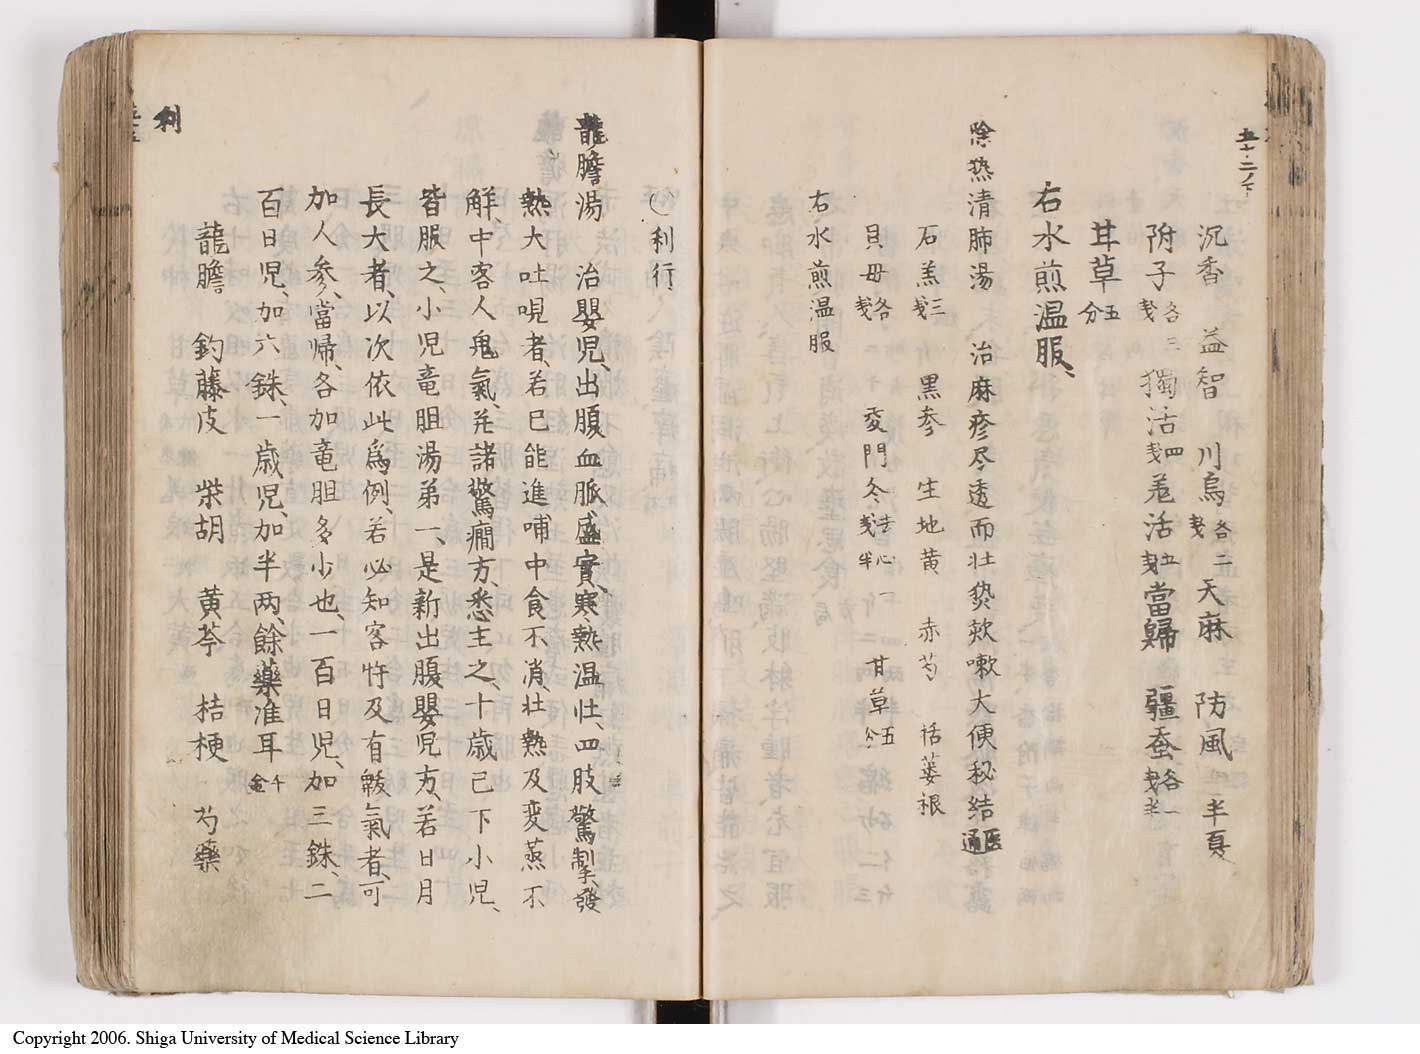 沉香 益智 川烏各二戔 天麻 防風 半夏
附子各三戔 獨活四戔 羗活戔 當歸 彊蚕各一戔半
甘草五分
右水煎温服、
除热清肺湯 治麻疹尽透而壮热欬嗽大便秘結医通
石羔三戔 黒参 生地黄 赤芍 栝蔞根
貝母各戔 麦門冬去心一戔半 甘草五分
右水煎温服
利行
龍膽湯 治嬰児、出腹血脈盛實、寒熱温壮、四肢驚掣、發
熱大吐哯者、若已能進哺中食不消、壮熱及変蒸不
解、中客人鬼氣、并諸驚癇方、悉主之、十歳已下小児、
皆服之、小児竜胆湯弟一、是新出腹嬰児方、若日月
長大者、以次依此爲例、若必知客忤及有魃氣者、可
加人参、當帰、各加竜胆多少也、一百日児、加三銖、二
百日児、加六銖、一歳児、加半两、餘藥准耳千金
龍膽 釣藤皮 柴胡 黄芩 桔梗 芍藥
利
Copyright 2006. Shiga University of Medical Science Library